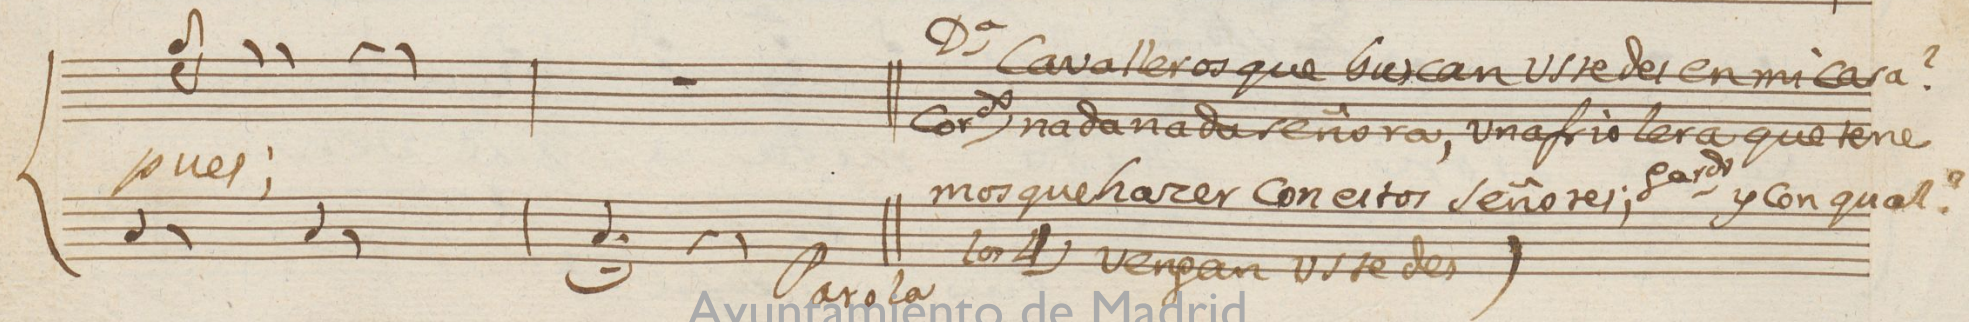 Dª Cavalleros que buscan ustedes en mi casa?
Cord.º nada nada señora, una friolera que tene
pues;
mos que hazer con estos señores; Gard.º y con qual?
los 4 vengan ustedes)
Parola
Ayuntamiento de Madrid